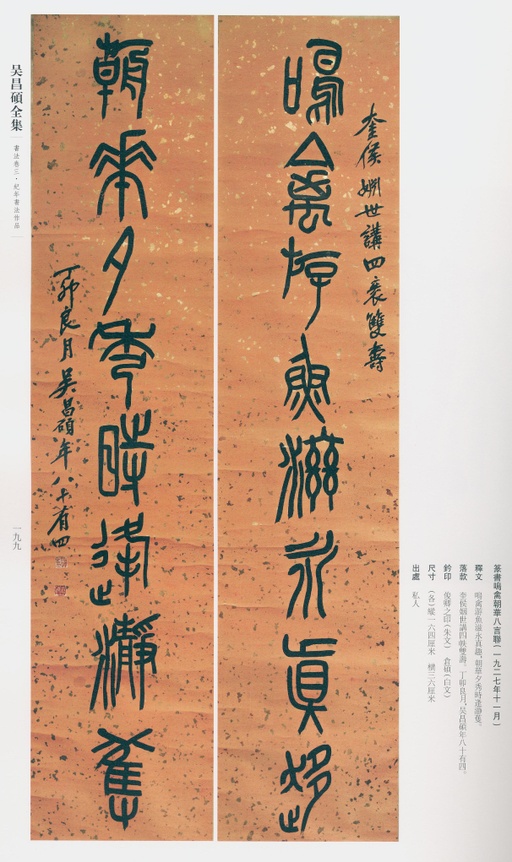 奎侯姻世講四袠雙壽
鳴禽游魚滋永真趣
朝華夕秀時逢瀞
丁卯良月吳昌碩年八十有四
篆書鳴禽朝華八言聯(一九二七年十一月)
釋文 鳴禽游魚滋永真趣,朝華夕秀時逢瀞
落款 奎侯姻世講四袠雙壽。丁卯良月,吳昌碩年八十有四。
鈐印 俊卿之印(朱文) 倉碩(白文)
尺寸 (各)縱一六四厘米 橫三六厘米
出處 私人
吴昌碩全集
書法卷三·紀年書法作品
一九九